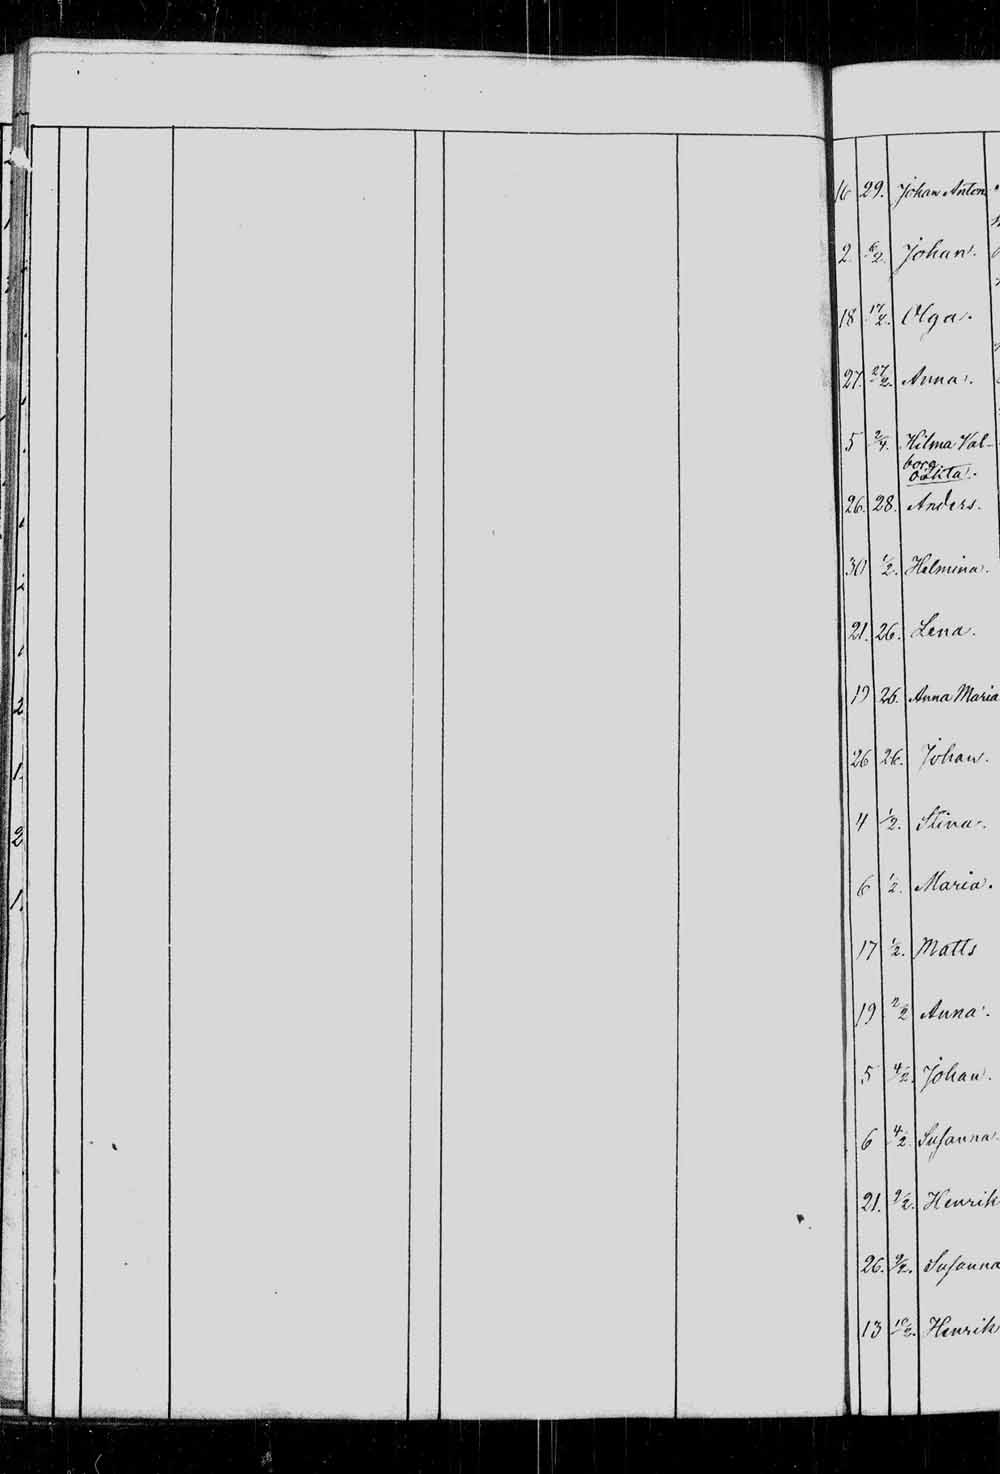 16 29. Johan Anton
2. 6/2. Johan.
18 17/2. Olga.
27. 27/2. Anna.
5 2/4. Hilma Val-
borg.
oäkta.
26. 28. Anders.
30 1/2. Helmina.
21. 26. Lena.
19 26. Anna Maria
26 26. Johan.
4 1/2. Stina.
6 1/2. Maria.
17 1/2. Matts
19 2/2 Anna.
5 4/2. Johan.
6 4/2 Susanna.
21. 9/2. Henrik
26. 9/2. Susanna
13 10/2. Henrik
2
1
2
1.
2
1.